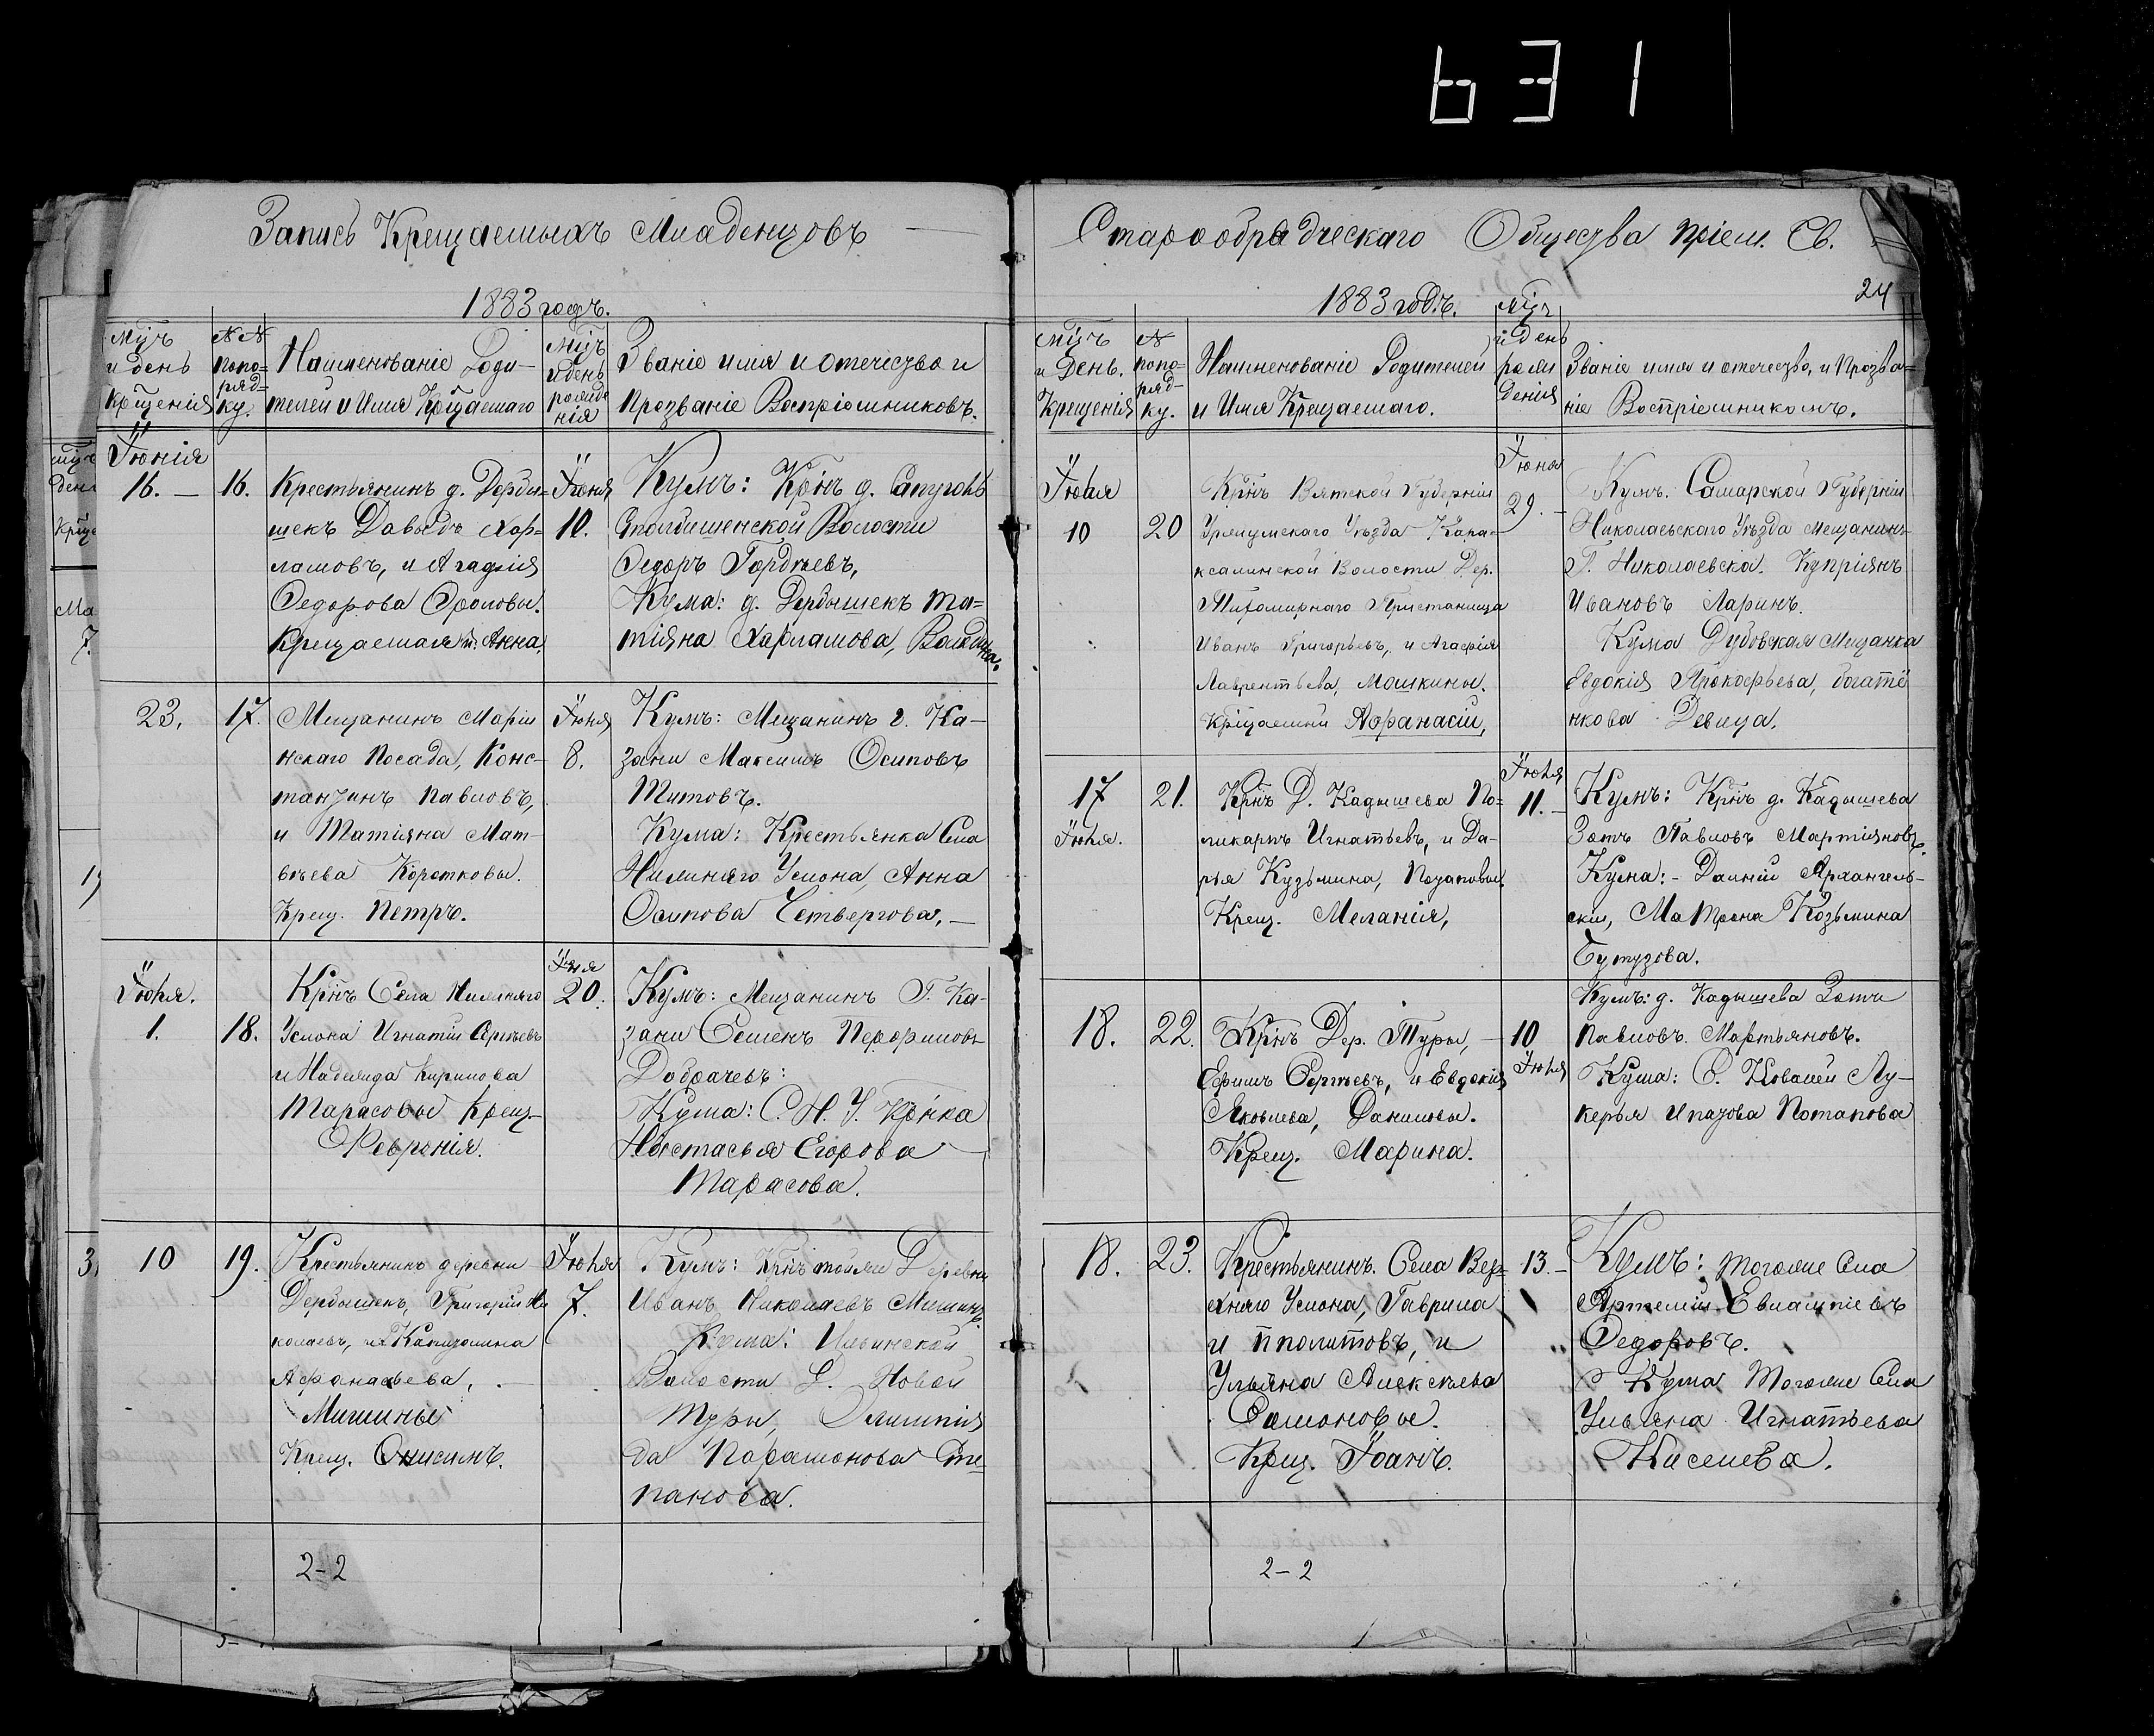 631
Запись Крещаемыхъ Младенцовъ
1883 годъ.
Мц҃ъ и день Крщенія
№№ попо=ряд=ку.
Наименованіе Роди-
телей и Имя Крщаемаго
Мц҃ъ и день рожде нія
Званіе имя и отечество и
Прозваніе Воспріѣмниковъ.
Іюнія
16. — 16. Крестьянинъ д. Дерби=
шекъ Давыдъ Хар=
ламовъ, и Агафія
Федорова Фроловы.
Крещаемая м: Анна.
Іюня
10.
Кумъ: Кр҃нъ д. Сапуголь
Столбищенской Волости
Федоръ Гордѣевъ,
Кума: д. Дербышекъ Та=
тіяна Харламова,
23. 17. Мещанинъ Марiи
нскаго Посада, Конс-
тантинъ Павловъ,
и Татіяна Мат-
вѣева Коротковы.
Крещ. Петръ.
Іюня
8.
Кумъ: Мещанинъ г. Ка-
зани Максимъ Осиповъ
Титовъ.
Кума: Крестьянка Села
Нижняго Услона, Анна
Осипова Четвергова. —
Іюля.
1. 18. Кр҃нъ Села Нижняго
Услона Игнатій Сергѣевъ
и Надежда Кирилова
Тарасовы Крещ-
Февронія.
Іюня
20.
Кумъ: Мещанинъ Г. Ка-
зани Семенъ Перфиловъ
Добрачевъ:
Кума: С. Н. У. Кр҃нка
Настасья Егорова
Тарасова.
10 19. Крестьянинъ деревни
Дербышекъ, Григорій Ни
колаевъ, и Капитолина
Афанасьева, —
Мишины
Крещ. Онисимъ.
Іюля
7.
Кумъ: Кр҃нъ тойже Деревни
Иванъ Николаевъ Мишинъ.
Кума: Ильинской
Волости Д. Новой
Туры, Олимпія
да Парамонова Сте
панова.
2-2
Старообрядческаго Общества пріем. Св.
24
1883 годъ.
Мц҃ъ и День. Крещенія
№ попо-ряд-ку.
Наименованіе Родителей
и Имя Крещаемаго.
мц҃ъ и день рожи денія
Званіе имя и отечество, и Прозва=
ніе Воспріемникомъ.
Іюля
10 20 Кр҃нъ Вятской Губерніи
Уржумскаго Уѣзда Кара=
ксалинской Волости Дер.
Тихомирнаго Пристанища
Иванъ Григорьевъ, и Агафія
Лаврентьева, Мошкины.
Кріщаемый Афанасій,
Іюня
29. –
Кумъ. Самарской Губерніи
Николаевскаго Уѣзда Мещанинъ
Г. Николаевска. Купріянъ
Ивановъ Ларинъ.
Кума Дубовская Мещанка
Евдокія Прокофьева, богатё
нкова Девица.
17
Іюля.
21. Кр҃нъ Д. Кадышева По=
ликарпъ Игнатьевъ, и Да-
рья Кузьмина, Потаповы.
Крещ. Меланія,
Іюля
11. –
Кумъ: Кр҃нъ д. Кадышева
Зотъ Павловъ Мартіяновъ.
Кума: – Дальній Архангель-
ски, Матрона Козьмина
Бутузова.
18. 22. Кр҃нъ Дер. Туры, –
Ефимъ Сергѣевъ, и Евдокія
Яковлева, Данилова.
Крещ. Марина.
10
Іюля
Кумъ: д. Кадышева Зотъ
Павловъ Мартьяновъ.
Кума: С. Ковалей Лу-
керья Ипатова Потапова
18. 23. Крестьянинъ. Села Вер=
хняго Услона, Гаврила
и пполитовъ, и
Ульяна Алексѣева
Самоновы.
Крещ. Іоанъ.
13. –
Кумъ: тогоже Села
Артемій Евлампіевъ
Федоровъ.
Кума Тогоже Села
Ульяна Игнатьева
Киселева.
2-2